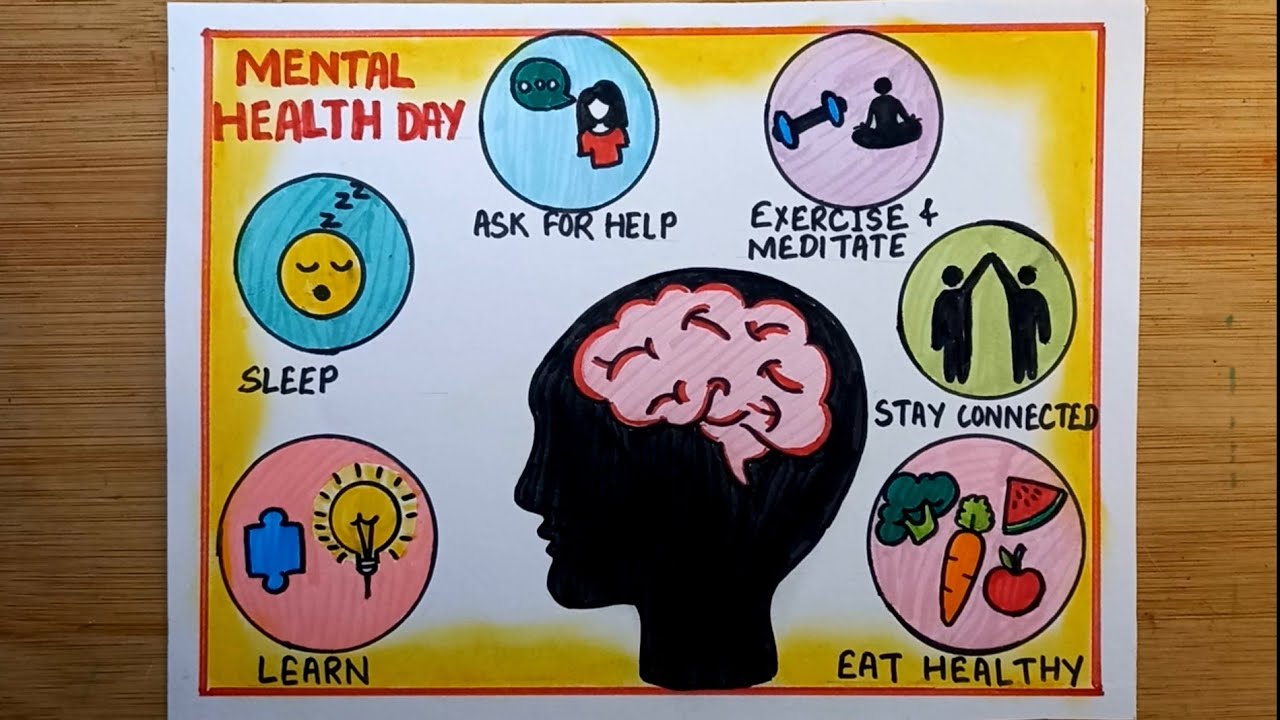 MENTAL
HEALTH DAY
ASK FOR HELP
EXERCISE &
MEDITATE
z z z
SLEEP
STAY CONNECTED
LEARN
EAT HEALTHY